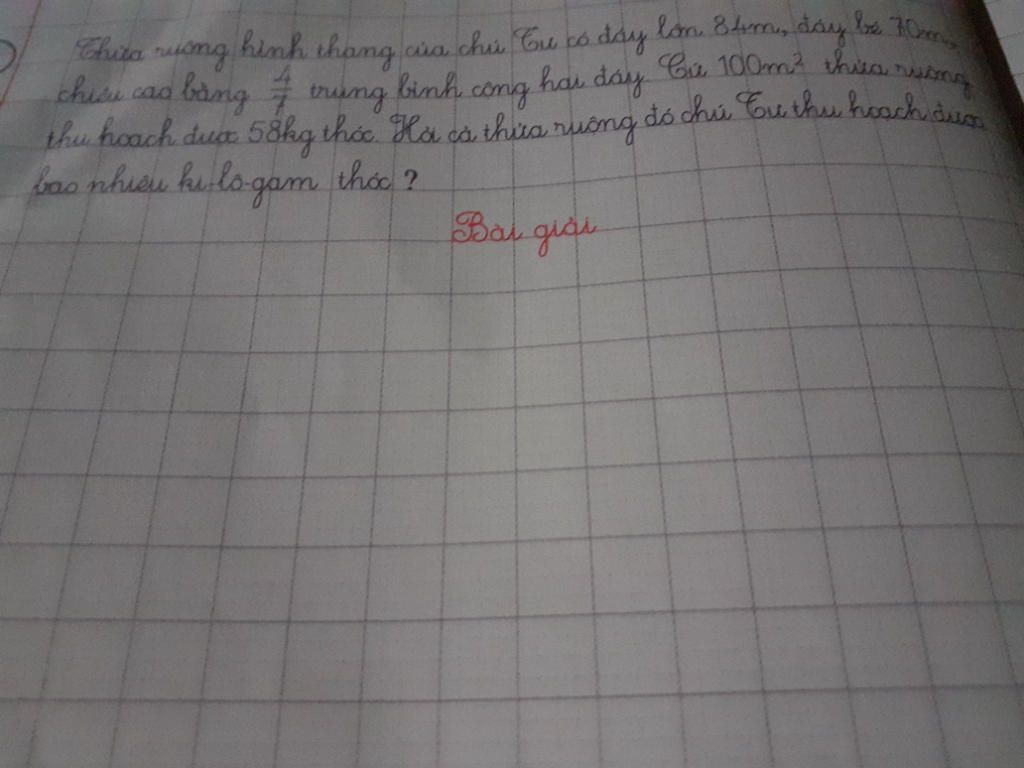 Thửa ruộng hình thang của chú Tư có đáy lớn 84m, đáy bé 70m,
chiều cao bằng 4/7 trung bình cộng hai đáy. Cứ 100m² thửa ruộng
thu hoạch được 58kg thóc. Hỏi cả thửa ruộng đó chú Tư thu hoạch được
bao nhiêu ki-lô-gam thóc?
Bài giải